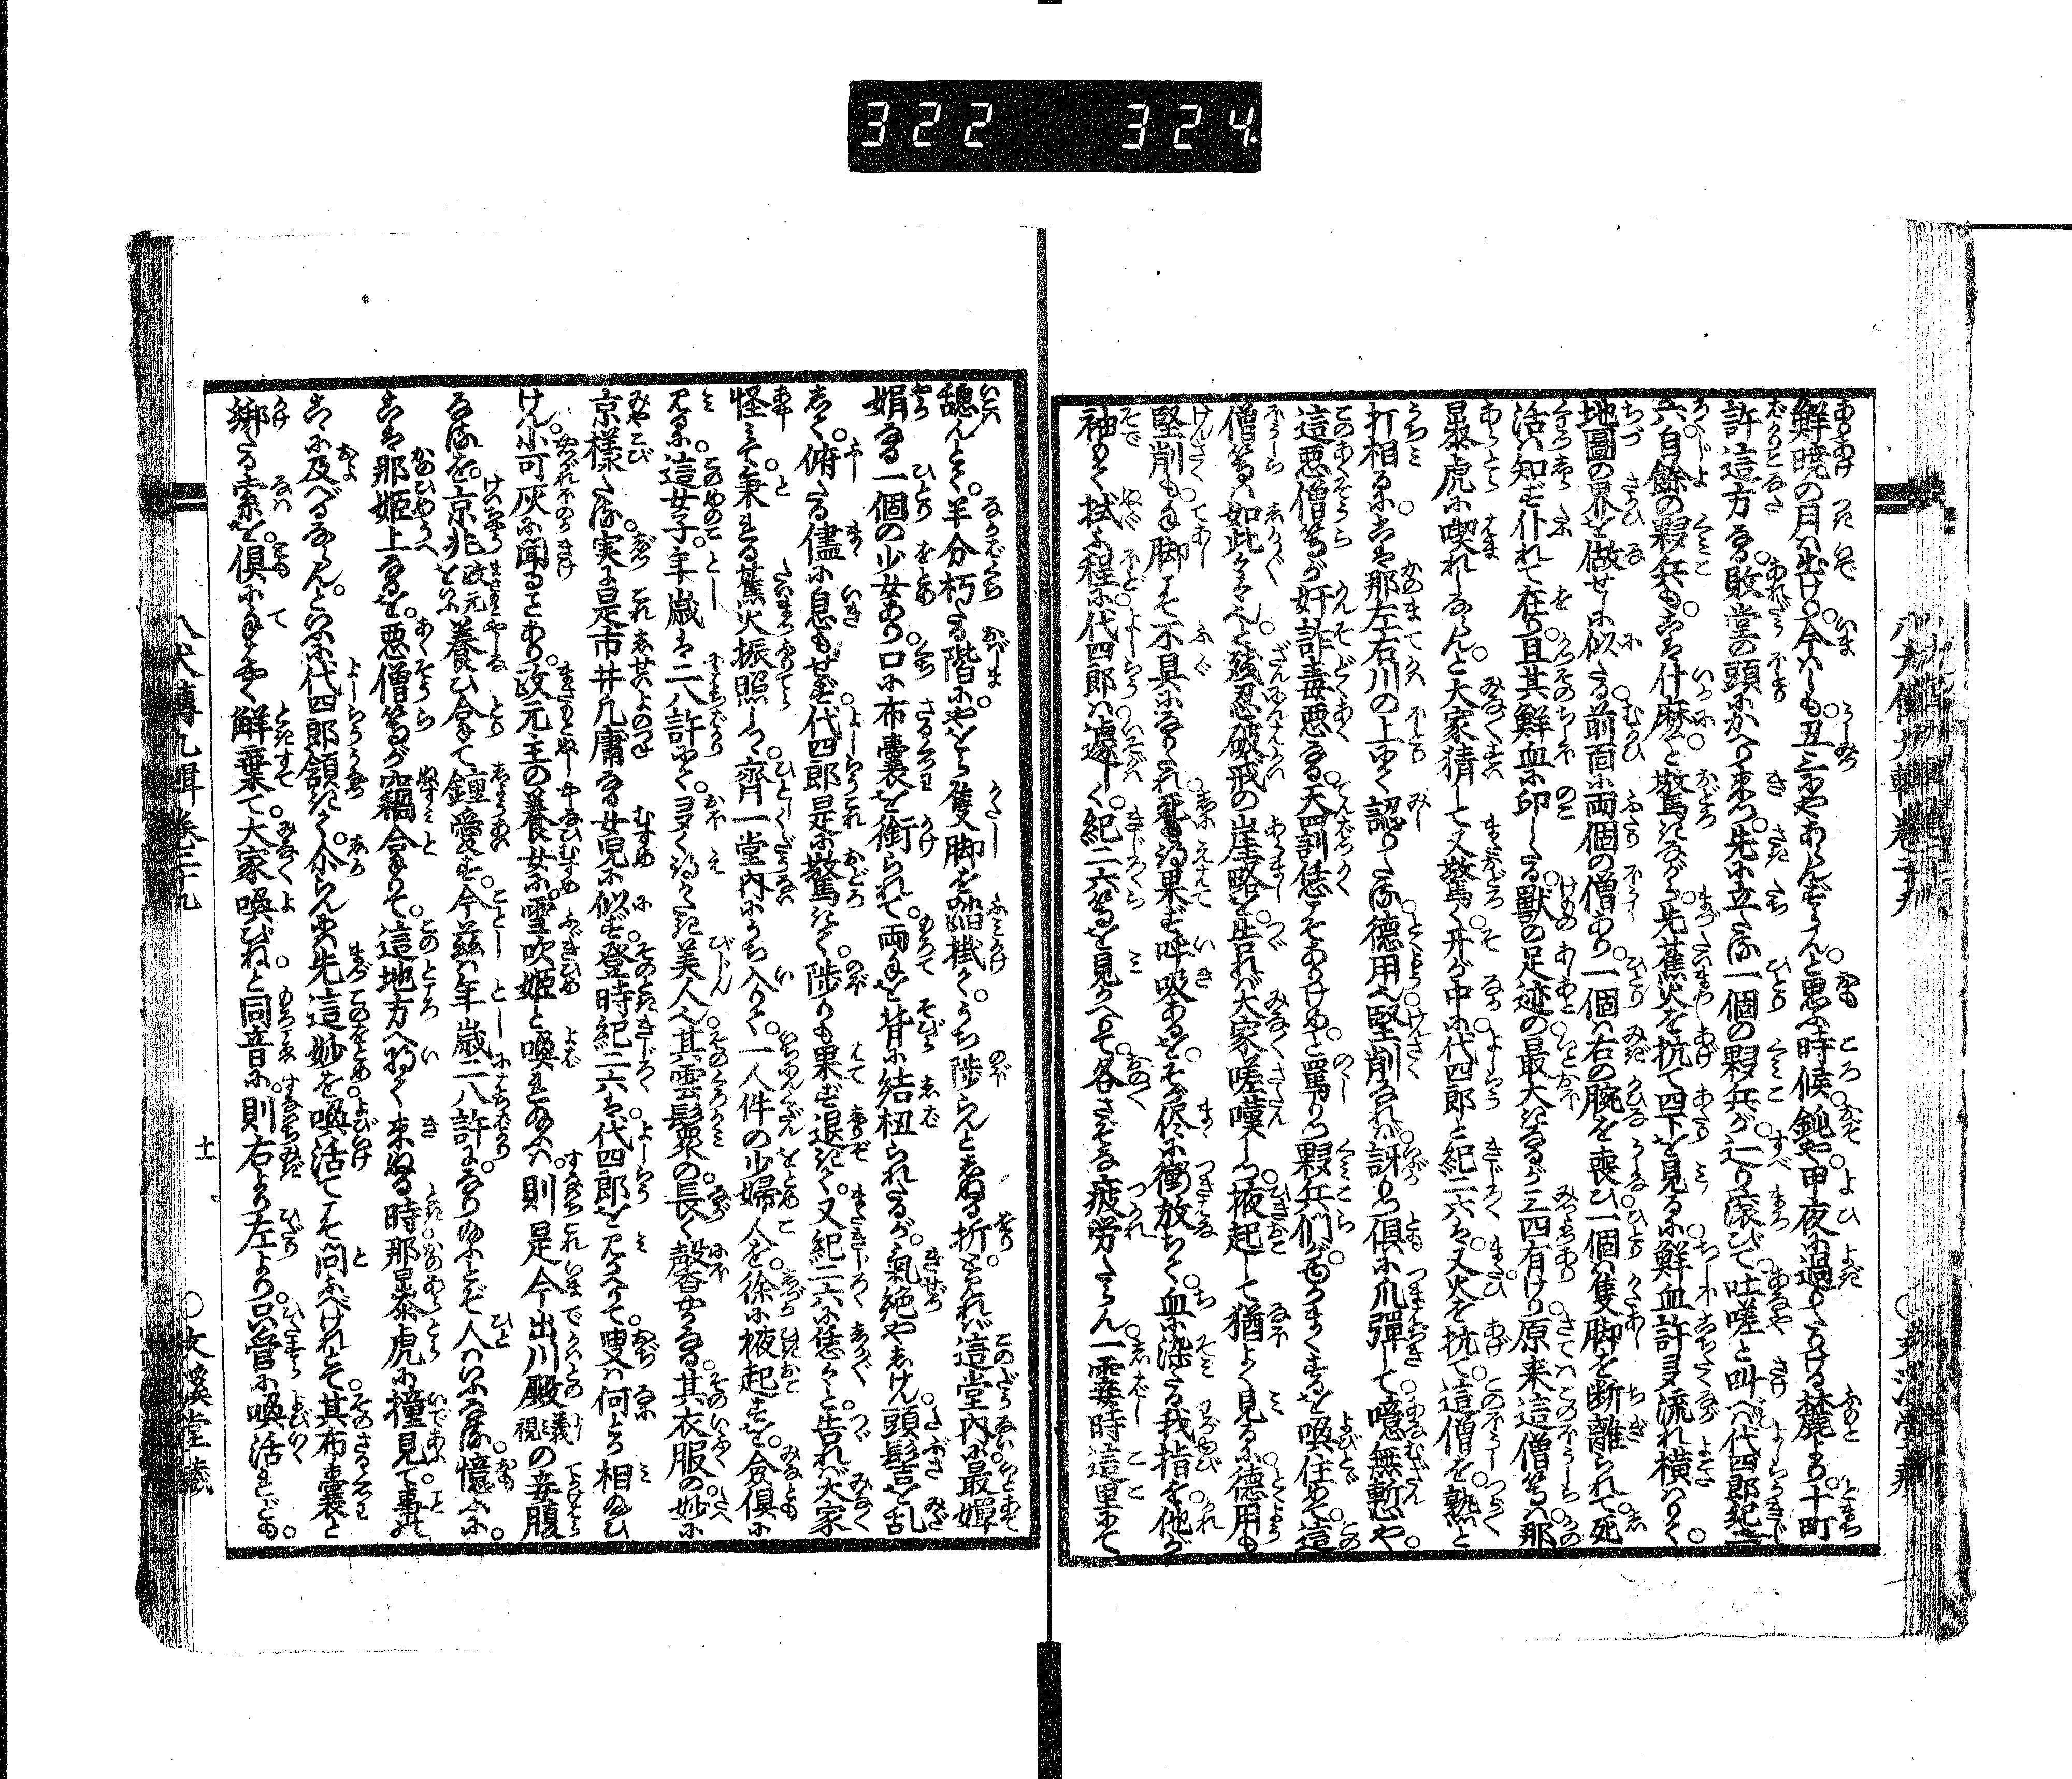 322 324
鮮暁の月は出けり。今はしも。丑三にやあらんずらん。と思ふ時候。鈍や甲夜に過りたりける。麓より。十町
許這方なる。敗堂の頭にかへり来つ。先に立たる一個の夥兵が。辷り滚びて。吐嗟と叫べば。代四郎紀二
六。自餘の夥兵も。こは什麽と驚きながら。先蕉火を抗て四下を見るに。鮮血許多流れ横はりて。
地圖の界を做せしに似たる。前面に両個の僧あり。一個は右の腕を喪ひ。一個は隻脚を断離られて。死
活は知ず仆れて在り。且其鮮血に印したる。獣の足迹の最大きなるが三四有けり。原来這僧等は。那
暴虎に喫れしならん。と大家猜して又驚く。开が中に代四郎と。紀二六は。又火を抗て。這僧を熟と
打相るに。こは那左右川の上にて。認りたる徳用と。堅削なれば。訝りつ倶に爪弾して。噫無慙や。
這悪僧等が。奸詐毒悪なる。天罰恁こそありけめ。と罵りつ。夥兵們がもてまくするを喚住めて。這
僧等は如此々々。と残忍破戒の崖略を告れば。大家嗟嘆しつ。掖起して猶よく見るに。徳用も
堅削も。手脚こそ不具になりたれ。死も得果ず。呼吸あるを。その侭に衝放ちて。血に染たる我指を。他が
袖もて。拭ふ程に。代四郎は遽しく。紀二六等を見かへりて。各さぞな疲労たらん。一霎時這里にて
憩んとて。半分朽たる階に。やをら隻脚を踏掛て。うち陟らんとしぬる折。と見れば這堂内に。最嬋
娟なる一個の少女あり。口に布嚢を銜られて。両手を背に結杻られたるが。氣絶やしけん。頭髻を乱
して。俯たる儘に息もせず。代四郎是に驚きて。陟りも果ず退きて。又紀二六に恁々と告れば。大家
怪みて。秉たる蕉火振照しつ。齊一堂内にうち入りて。一人件の少婦人を。徐に掖起すを。僉倶に
見るに。這女子。年歳は二八許にて。多く得がたき美人也。其雲鬟の長く馨やかなる。其衣服の妙に
京様たる。実に是市井凡庸なる女児に似ず。登時紀二六は。代四郎を見かへりて。叟は何とか相給ひ
けん。小可灰に聞ることあり。政元主の養女に。雪吹姫と喚れ給ふは。則是今出川殿義視の妾腹
なるを。京兆政元をいふ養ひ合りて。鍾愛す。今茲は年歳二八許になり給ふとぞ。人はいふなる。憶ふに。
こは那姫上なるを。悪僧等が竊合りて。這地方へ将て来ぬる時。那暴虎に撞見て。事の
こゝに及べるならん。といふに代四郎領きて。尓らん尓らん。先這妙を喚活てこそ問ふべけれとて。其布嚢と
綁たる索を。倶に手ばやく解棄て。大家喚びねと同音に。則右より左より。只管に喚活れども。
八犬傳九輯巻二十九
十一
○文溪堂藏